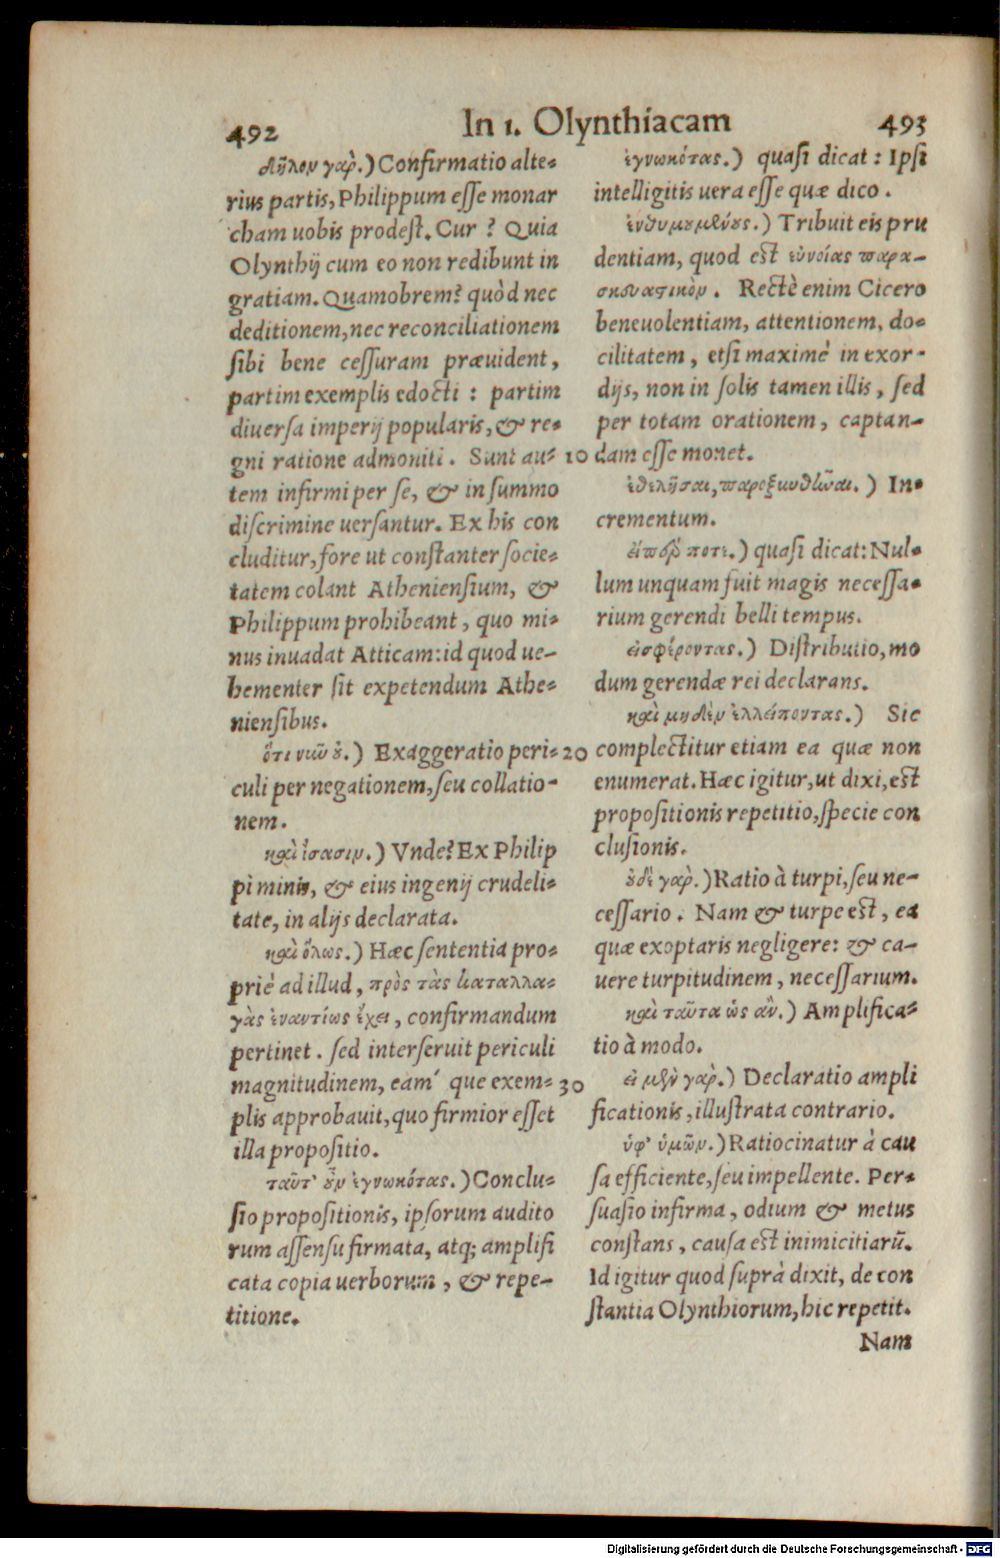 492
In 1. Olynthiacam
493
δῆλον γὰρ.) Confirmatio alte-
rius partis, Philippum esse monar
cham uobis prodest. Cur ? Quia
Olynthij cum eo non redibunt in
gratiam. Quamobrem? quòd nec
deditionem, nec reconciliationem
sibi bene cessuram præuident,
partim exemplis edocti : partim
diuersa imperij popularis, & re-
gni ratione admoniti . Sunt au-
tem infirmi per se, & in summo
discrimine uersantur. Ex his con
cluditur, fore ut constanter socie-
tatem colant Atheniensium, &
Philippum prohibeant, quo mi-
nus inuadat Atticam: id quod ue-
hementer sit expetendum Athe-
niensibus.
ὅτι νιῶ ȣ.) Exaggeratio peri-
culi per negationem, seu collatio-
nem.
καὶ ἴσασιν.) Vnde? Ex Philip
pi minis, & eius ingenij crudeli-
tate, in alijs declarata.
καὶ ὅλως.) Hæc sententia pro-
priè ad illud, πρὸς τὰς καταλλα-
γὰς ἐναντίως ἔχει, confirmandum
pertinet . sed interseruit periculi
magnitudinem, eamq́ue exem-
plis approbauit, quo firmior esset
illa propositio.
ταῦτ' ȣ̓͂ν ἐγνωκότας.) Conclu-
sio propositionis, ipsorum audito
rum assensu firmata, atq; amplifi
cata copia uerborum , & repe-
titione.
10
20
30
ἐγνωκότας.) quasi dicat : Ipsi
intelligitis uera esse quæ dico .
ἐνθυμȣμένȣς.) Tribuit eis pru
dentiam, quod est εὐνοίας παρα-
σκευαστικὸν . Rectè enim Cicero
beneuolentiam, attentionem, do-
cilitatem , etsi maximè in exor-
dijs, non in solis tamen illis , sed
per totam orationem , captan-
dam esse monet.
ἐθελῆσαι, παροξυνθῆναι. ) In-
crementum.
εἴπερ ποτε.) quasi dicat: Nul-
lum unquam fuit magis necessa-
rium gerendi belli tempus.
εἰσφέροντας.) Distributio, mo
dum gerendæ rei declarans.
καὶ μηδὲν ἐλλείποντας.) Sic
complectitur etiam ea quæ non
enumerat. Hæc igitur, ut dixi, est
propositionis repetitio, specie con
clusionis.
ȣ̓δὲ γὰρ.) Ratio à turpi, seu ne-
cessario . Nam & turpe est , ea
quæ exoptaris negligere: & ca-
uere turpitudinem, necessarium.
καὶ ταῦτα ὡς ἂν.) Amplifica-
tio à modo.
εἰ μὲν γὰρ.) Declaratio ampli
ficationis, illustrata contrario.
ὑφ' ὑμῶν.) Ratiocinatur à cau
sa efficiente, seu impellente. Per-
suasio infirma , odium & metus
constans , causa est inimicitiarū.
Id igitur quod suprà dixit, de con
stantia Olynthiorum, hic repetit.
Nam
Digitalisierung gefördert durch die Deutsche Forschungsgemeinschaft - DFG